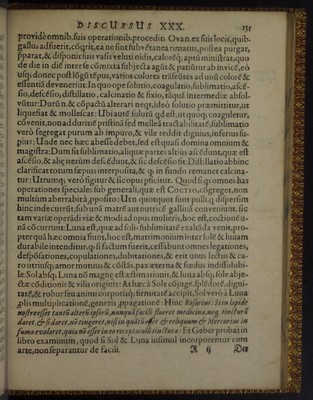 DISCURSUS XXX. 131
providè omnib. suis operationib. procedit. Ova n. ex suis locis, quib.
gallus adfuerit, coqrit, ea ne sint subventanea rimatur, postea purgat,
pparat, & disponit huic vasi veluti nidis, calorẽq; aptũ ministrat, quo
de die in diẽ interse cõmixta subjecta agũt & patiũtur ab invicẽ, eò
usq; donec post lõgũ tẽpus, varios colores trãseũtes ad unũ colorẽ &
essentiã devenerint. In quo ope solutio, coagulatio, sublimatio, ascẽ-
sio, descẽsio, distillatio, calcinatio & fixio, istiusq́ intermediæ absol-
vũtur: Durũ n. & cõpactũ alterari neqt, ideò solutio præmittitur, ut
liquefiat & mollescat: Ubi autẽ solutũ qd est, ut quoq; coaguletur,
cõvenit, non ad duritiẽ pristinã sed melleã tractabilitatẽ, sublimatio
verò segregat purum ab impuro, & vile reddit dignius, inferius su-
pius: Unde nec hæc abesse debet, sed est quasi domina omnium &
magistra: Dum fit sublimatio, aliquæ partes altiùs ascẽdunt, quæ est
ascẽsio, & aliæ iterùm descẽdunt, & sic descẽsio fit: Distillatio abhinc
clarificat totum sæpiùs interposita, & qd in fundo remanet calcina-
tur: Utrumq; verò figitur & sic opus pficitur. Quod si qs omnes has
operationes speciales sub generali, quæ est COCTIO, cõgreget, non
multùm aberrabit à pposito: Uti quotquot sint pulli, qi dispersim
huic inde currẽt, sub unũ matrẽ aut nutricẽ gallinã conveniunt. sic
tam variæ operãdi viæ & modi ad opus mulieris, hoc est, coctionẽ u-
nã cõcurrunt: Luna est, quæ ad solis sublimitatẽ exaltãda venit, pro-
pter quã hæc omnia fiunt, hoc est, matrimonium inter solẽ & lunam
durabile intenditur, qd si factum fuerit, cessabunt omnes legationes,
despõsationes, copulationes, dubitationes, & erit unus lectus & ca-
ro utriusq; amor mutuus & cõstãs. pax æterna & fœdus indissolubi-
le. Sol absq; Luna nõ magnę est æstimationis, & luna absq; sole abje-
ctæ cõditionis & vilis originis: At hæc à Sole cõjuge, splẽdorẽ, digni-
tatẽ, & robur seu animi corporisq; firmitatẽ accipit, Sol verò à Luna
, plis multiplicationẽ, generis ppagationẽ. Hinc Rosarius: Si in lapide
nostro esset tantũ alterũ ipsorũ, nunquã facilè flueret medicina, neq; tincturã
daret, & si daret, nõ tingeret, nisi in quãtũ esset & reliquum & Mercurius in
fumo evolaret, quia nõ esset in eo receptaculũ tincturæ: Et Geber probat in
libro examinum, quod si Sol & Luna insimul incorporentur cum
arte, non separantur de facili. R ij Deo